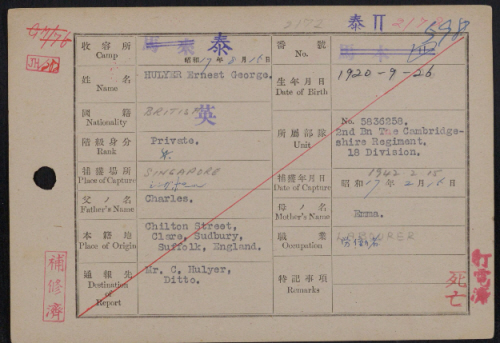 2172
泰 II
598
JH
收容所
Camp
泰
昭和17年8月15日
番號
No.
姓名
Name
HULYER Ernest George.
生年月日
Date of Birth
1920-9-26
國籍
Nationality
BRITISH
英
所屬部隊
Unit
No. 5836258.
2nd Bn The Cambridge-
shire Regiment,
18 Division.
階級身分
Rank
Private.
捕獲場所
Place of Capture
SINGAPORE
捕獲年月日
Date of Capture
1942-2-15
昭和17年2月15日
父ノ名
Father's Name
Charles.
母ノ名
Mother's Name
Emma.
本籍地
Place of Origin
Chilton Street,
Clare, Sudbury,
Suffolk, England.
職業
Occupation
LABOURER
労働者
通報先
Destination of Report
Mr. C. Hulyer,
Ditto.
特記事項
Remarks
補修濟
打電濟
死亡